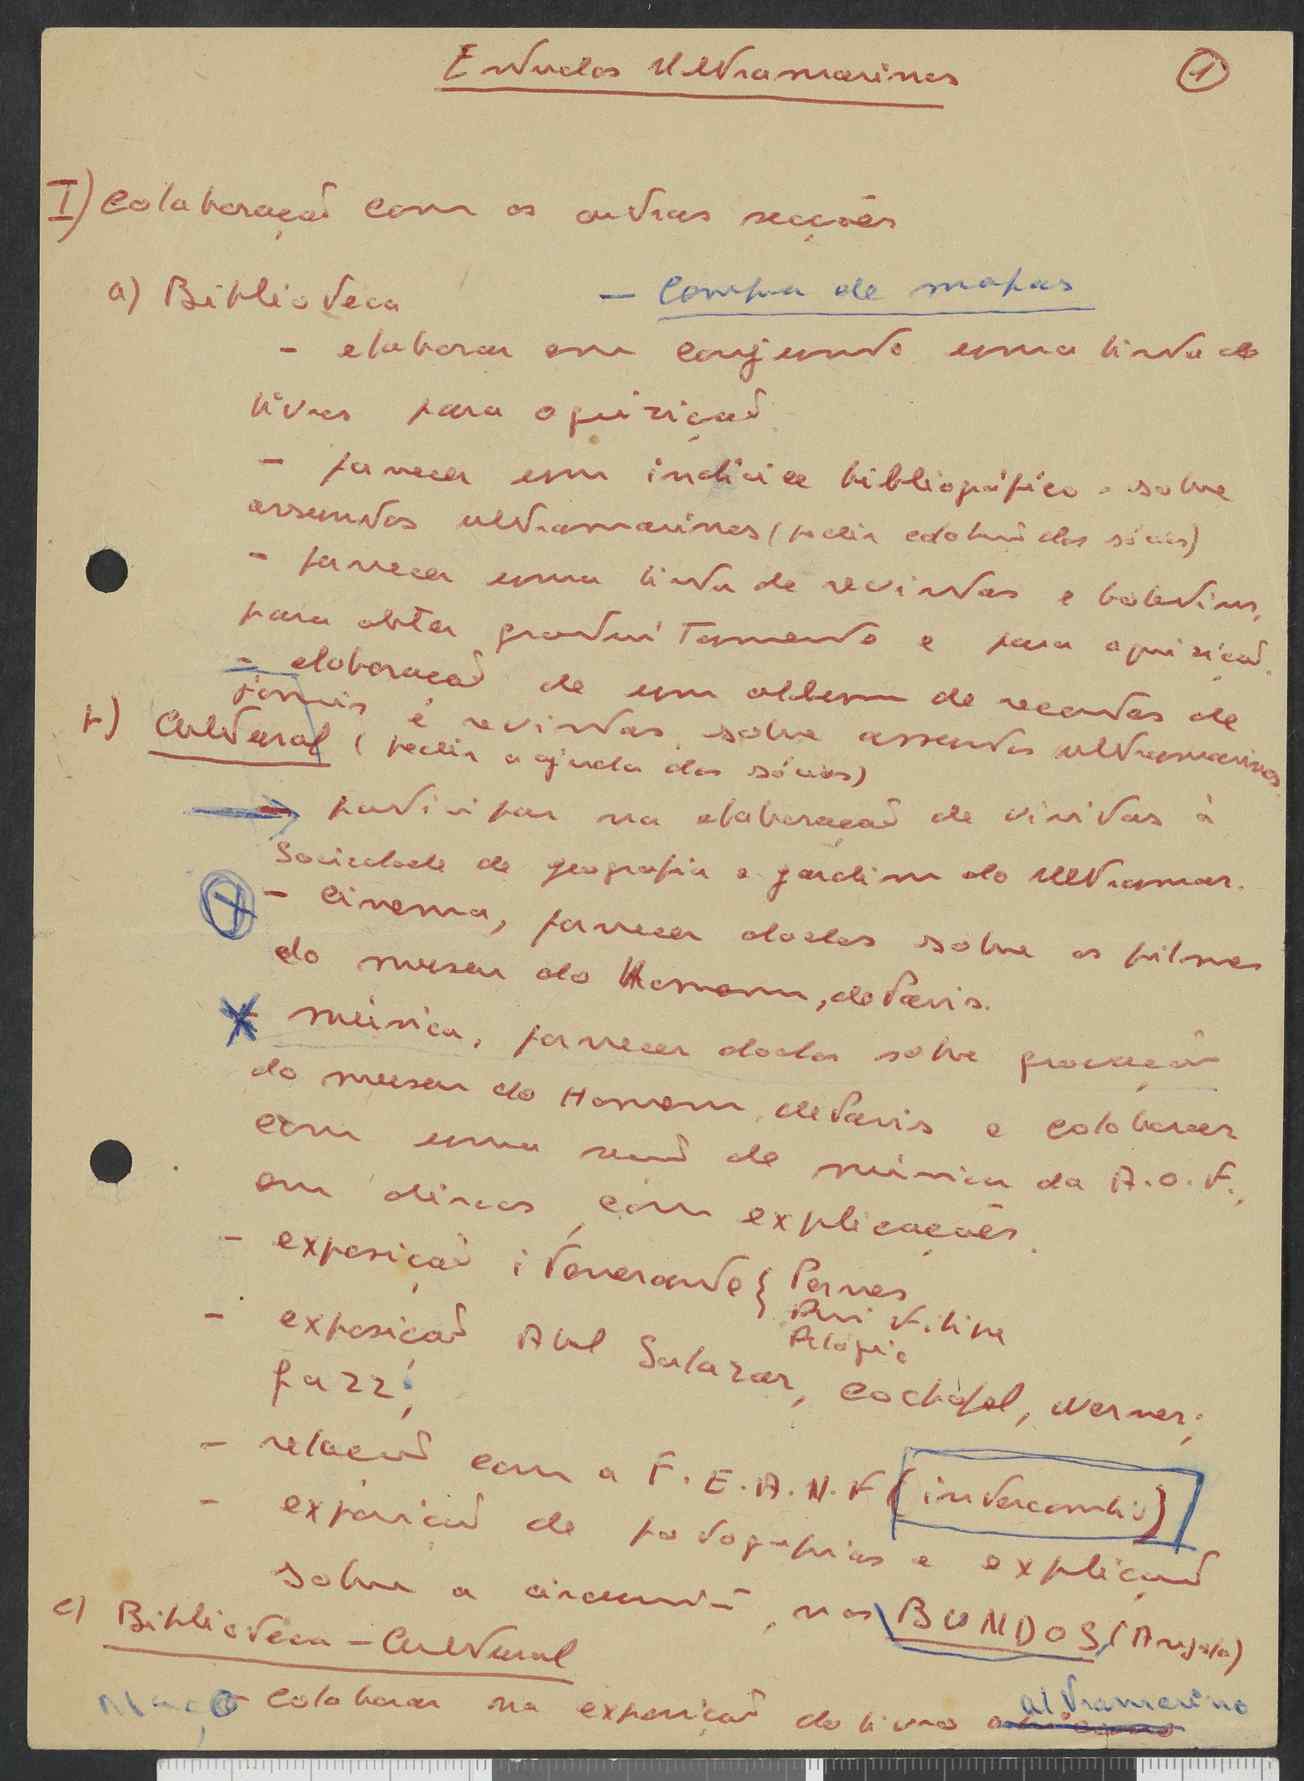 Estudos Ultramarinos
1
I) Colaboração com as outras secções
a) Biblioteca
- Compra de mapas
- elaborar em conjunto uma lista de
livros para aquisição
- fornecer um indície bibliográfico sobre
assuntos ultramarinos (pedir colab. dos sócios)
- fornecer uma lista de revistas e boletins,
para obter gratuitamente e para aquisição.
- elaboração de um album de recortes de
jornais e revistas, sobre assuntos ultramarinos
(pedir ajuda dos sócios)
b) Cultural
- participar na elaboração de visitas à
Sociedade de geografia e jardim do Ultramar.
- Cinema, fornecer dados sobre os filmes
do museu do Homem, de Paris.
- música, fornecer dados sobre gravação
do museu do Homem, de Paris e colaborar
com uma de música da A.O.F.,
em discos, com explicações.
- exposição itenerante { Pomar
Rui Filipe
Pelágio
- exposição Abel Salazar, Cochofel, Verner;
jazz;
- relação com a F.E.A.N.F (intercambio)
- exposição de fotografias e explicação
sobre a circuncisão, nos BUNDOS, (Angola)
c) Biblioteca - Cultural
Março - Colaborar na exposição do livro
ultramarino